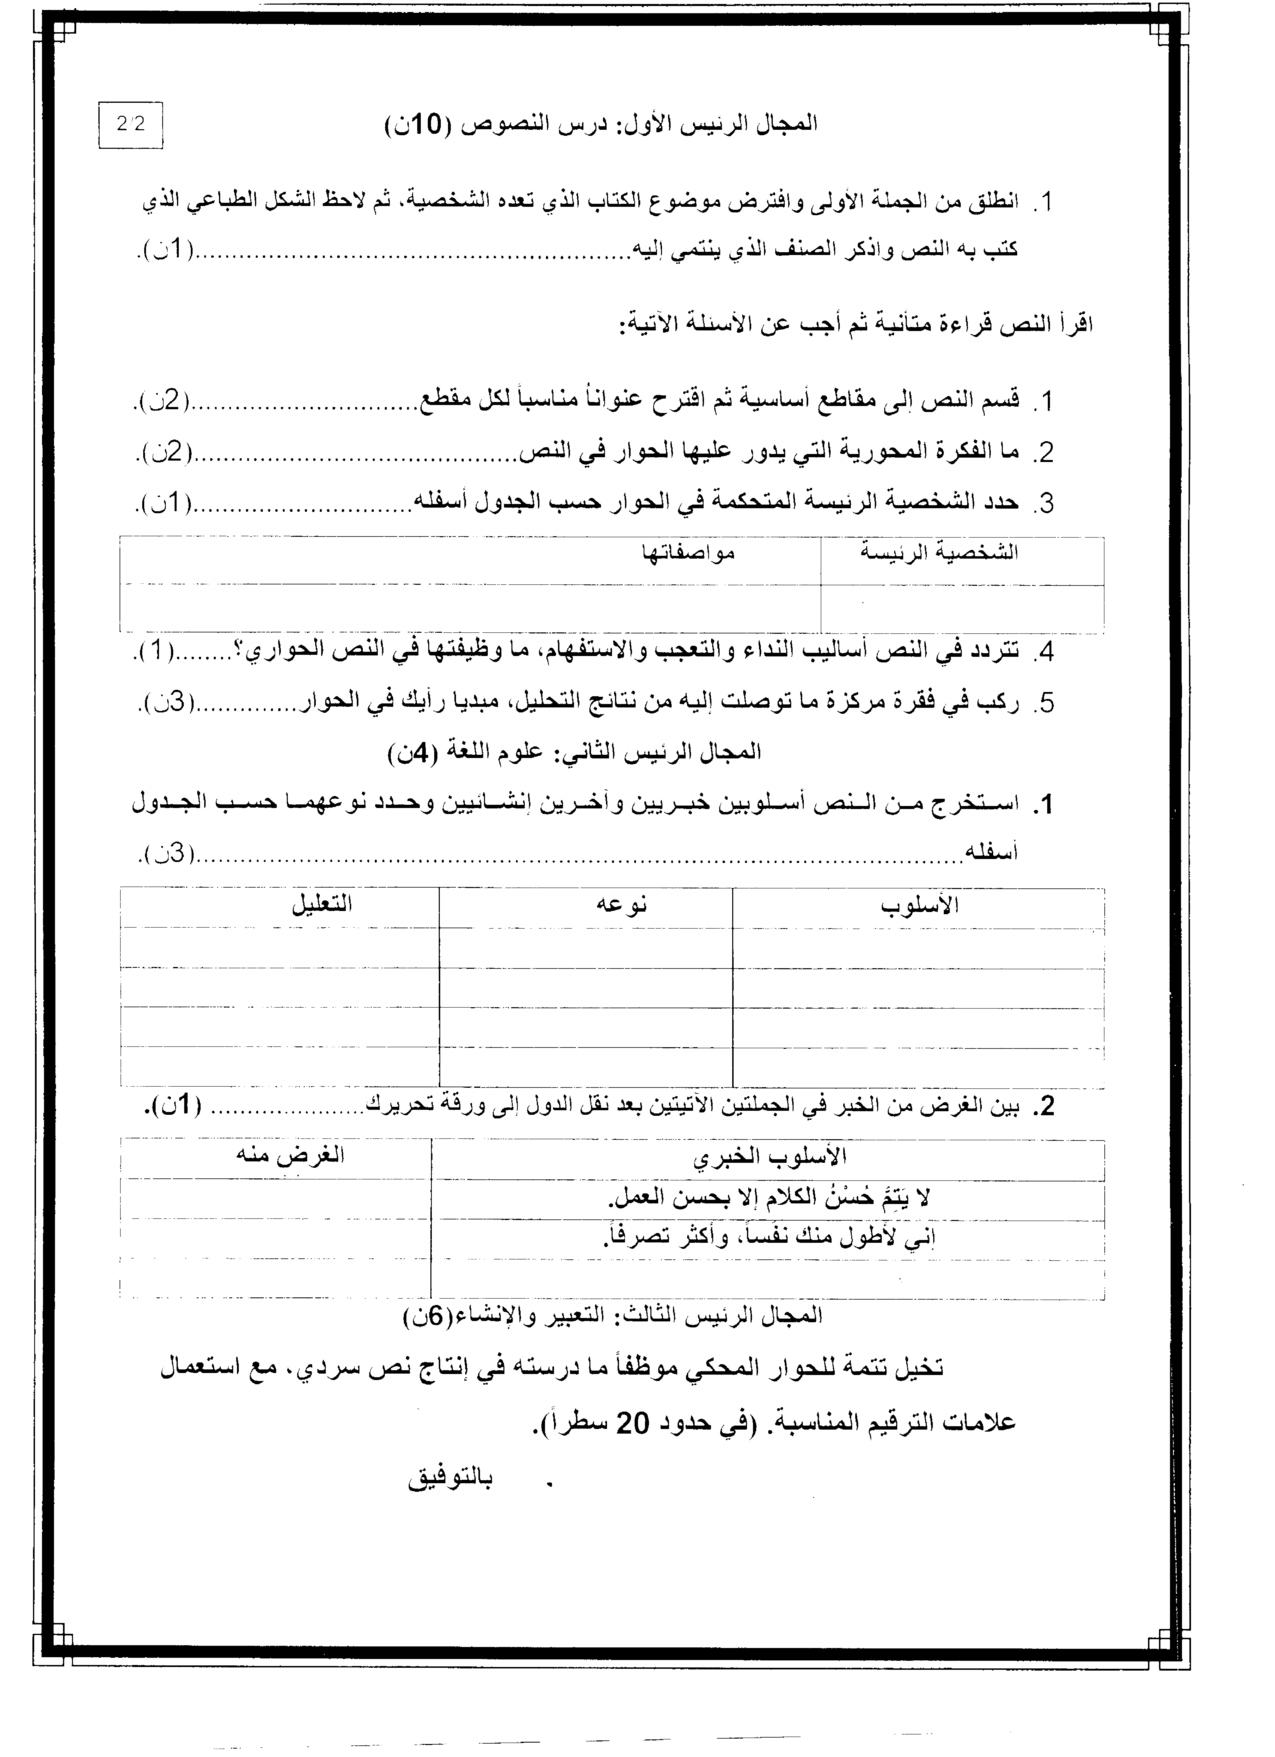 2/2
المجال الرئيس الأول: درس النصوص (10ن)
1. انطلق من الجملة الأولى وافترض موضوع الكتاب الذي تعده الشخصية، ثم لاحظ الشكل الطباعي الذي
كتب به النص واذكر الصنف الذي ينتمي إليه............................................................(1ن).
اقرأ النص قراءة متأنية ثم أجب عن الأسئلة الآتية:
1. قسم النص إلى مقاطع أساسية ثم اقترح عنواناً مناسباً لكل مقطع...............................(2ن).
2. ما الفكرة المحورية التي يدور عليها الحوار في النص.............................................(2ن).
3. حدد الشخصية الرئيسة المتحكمة في الحوار حسب الجدول أسفله..............................(1ن).
الشخصية الرئيسة مواصفاتها
4. تتردد في النص أساليب النداء والتعجب والاستفهام، ما وظيفتها في النص الحواري؟........(1).
5. ركب في فقرة مركزة ما توصلت إليه من نتائج التحليل، مبديا رأيك في الحوار..............(3ن).
المجال الرئيس الثاني: علوم اللغة (4ن)
1. استخرج من النص أسلوبين خبريين وآخرين إنشائيين وحدد نوعهما حسب الجدول
أسفله..........................................................................................................(3ن).
الأسلوب نوعه التعليل
2. بين الغرض من الخبر في الجملتين الآتيتين بعد نقل الدول إلى ورقة تحريرك..................... (1ن).
الأسلوب الخبري الغرض منه
لا يَتِمُّ حُسْنُ الكلام إلا بحسن العمل.
إني لأطول منك نفساً، وأكثر تصرفاً.
المجال الرئيس الثالث: التعبير والإنشاء(6ن)
تخيل تتمة للحوار المحكي موظفاً ما درسته في إنتاج نص سردي، مع استعمال
علامات الترقيم المناسبة. (في حدود 20 سطراً).
. بالتوفيق